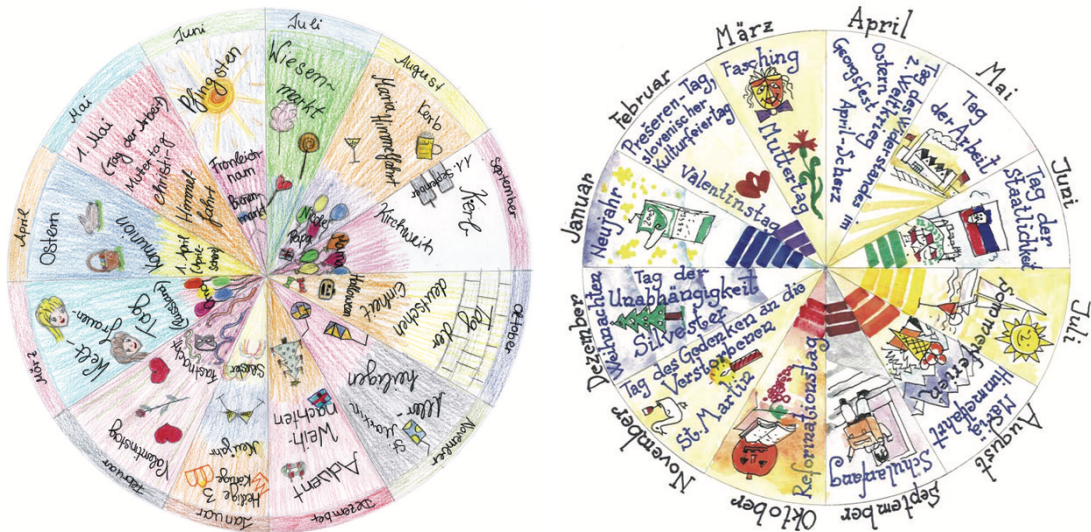 Januar
Neujahr
Heilige 3
Könige
Februar
Valentinstag
Fastnacht
März
Welt-
frauen-
Tag
April
Ostern
Kommunion
1. April
Mai
1. Mai
(Tag der Arbeit)
Muttertag
Christi
Himmel
fahrt
Juni
Pfingsten
Fronleich-
nam
Bienen-
markt
Juli
Wiesen-
markt
August
Kerb
Maria Himmelfahrt
September
11. September
Kerb
Kirchweih
Oktober
Tag der
deutschen
Einheit
Halloween
November
Aller-
heiligen
St. Martin
Dezember
Advent
Weih-
nachten
Silvester
Papa
Januar
Neujahr
Februar
Preseren-Tag,
slovenischer
Kulturfeiertag
Valentinstag
März
Fasching
Muttertag
April
Tag des Widerstandes im
2. Weltkrieg
Ostern
Georgsfest
April-Scherz
Mai
Tag
der Arbeit
Juni
Tag der
Staatlichkeit
Juli
Sommerferien
August
Maria
Himmelfahrt
September
Schulanfang
Oktober
Reformationstag
November
Tag des Gedenken an die
Verstorbenen
St. Martin
Dezember
Weihnachten
Tag der
Unabhängigkeit
Silvester